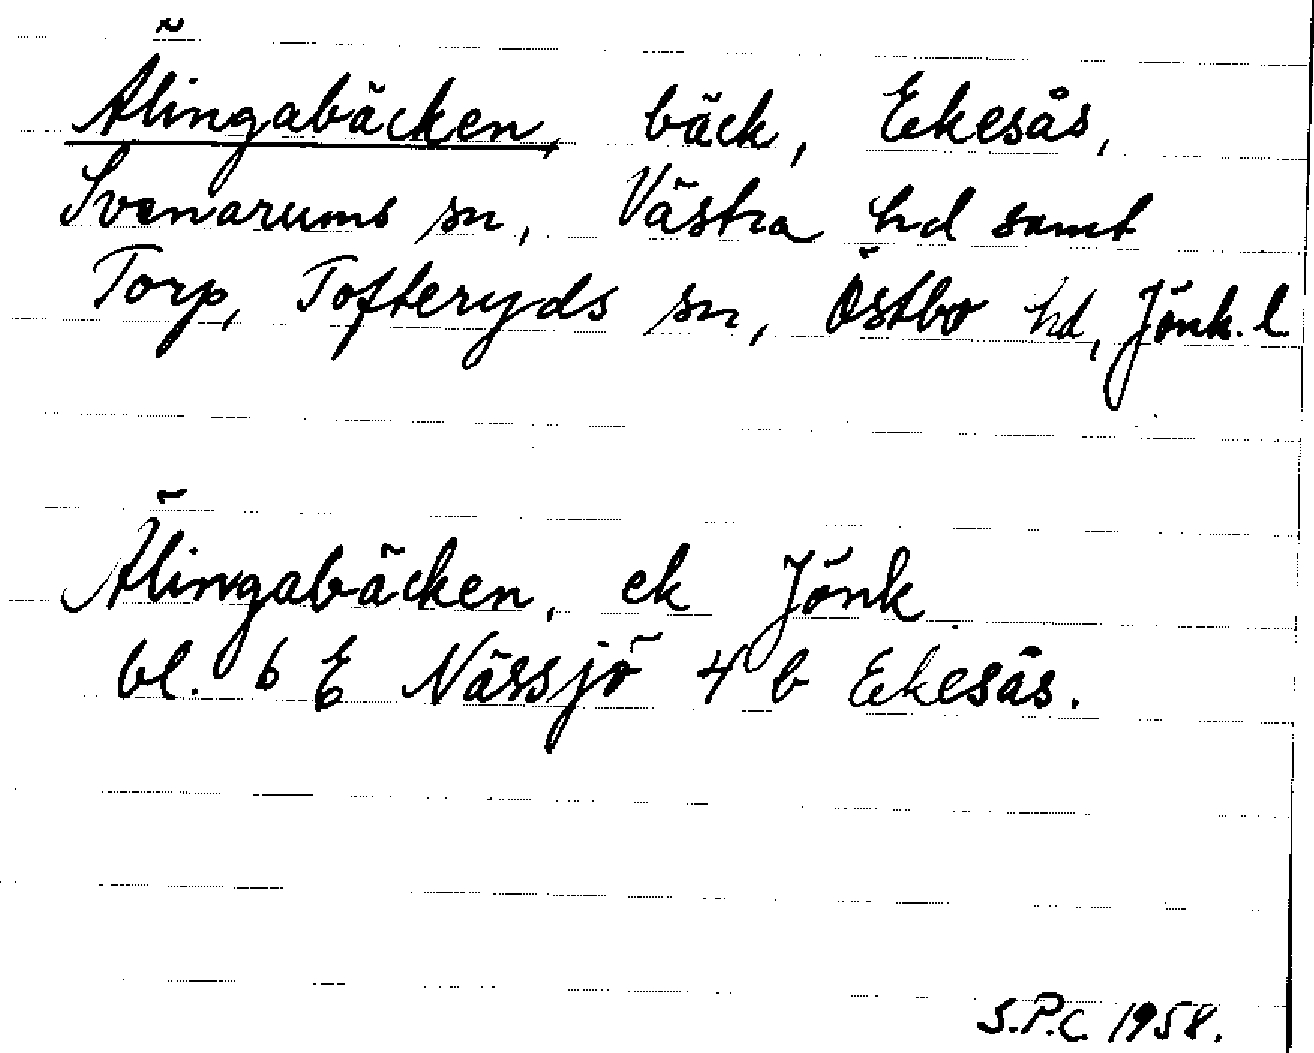 Älingabäcken, bäck, Ekesås,
Svenarums sn, Västra hd samt
Torp, Tofteryds sn, Östbo hd, Jönk. l
Älingabäcken, ek Jönk
bl. 6 E Nässjö 4 b Ekesås.
S.P.C. 1958.